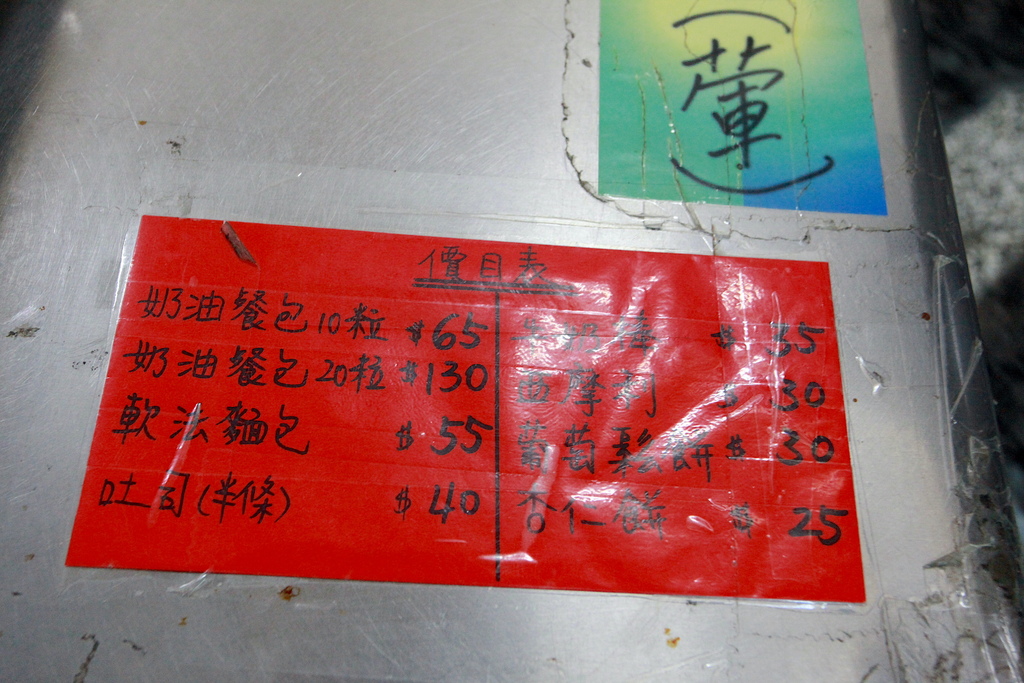 (葷)
價目表
奶油餐包10粒 $65
奶油餐包20粒 $130
軟法麵包 $55
吐司(半條) $40
$ 35
西摩利 $ 30
葡萄鬆餅 $ 30
杏仁餅 $ 25